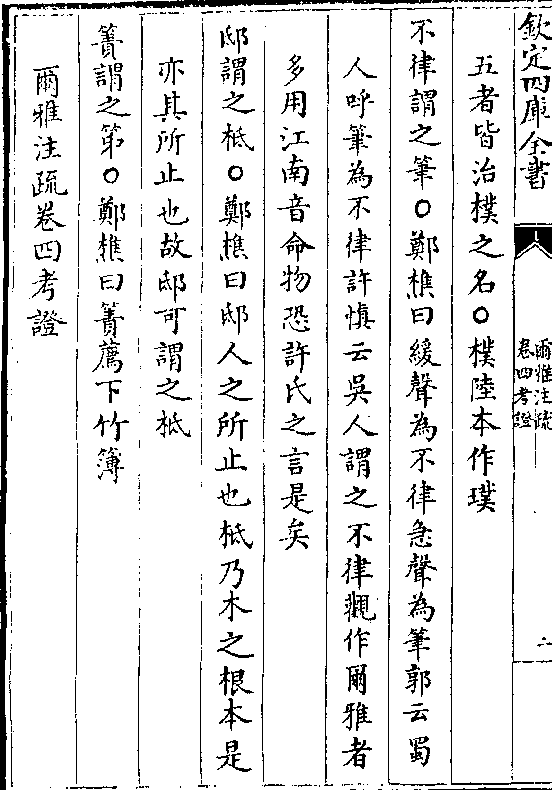 欽定四庫全書
爾雅注疏
卷四考證
二
五者皆治樸之名○樸陸本作璞
不律謂之筆○鄭樵曰緩聲為不律急聲為筆郭云蜀
人呼筆為不律許慎云吳人謂之不律觀作爾雅者
多用江南音命物恐許氏之言是矣
邸謂之柢○鄭樵曰邸人之所止也柢乃木之根本是
亦其所止也故邸可謂之柢
簀謂之第○鄭樵曰簀薦下竹簿
爾雅注疏卷四考證